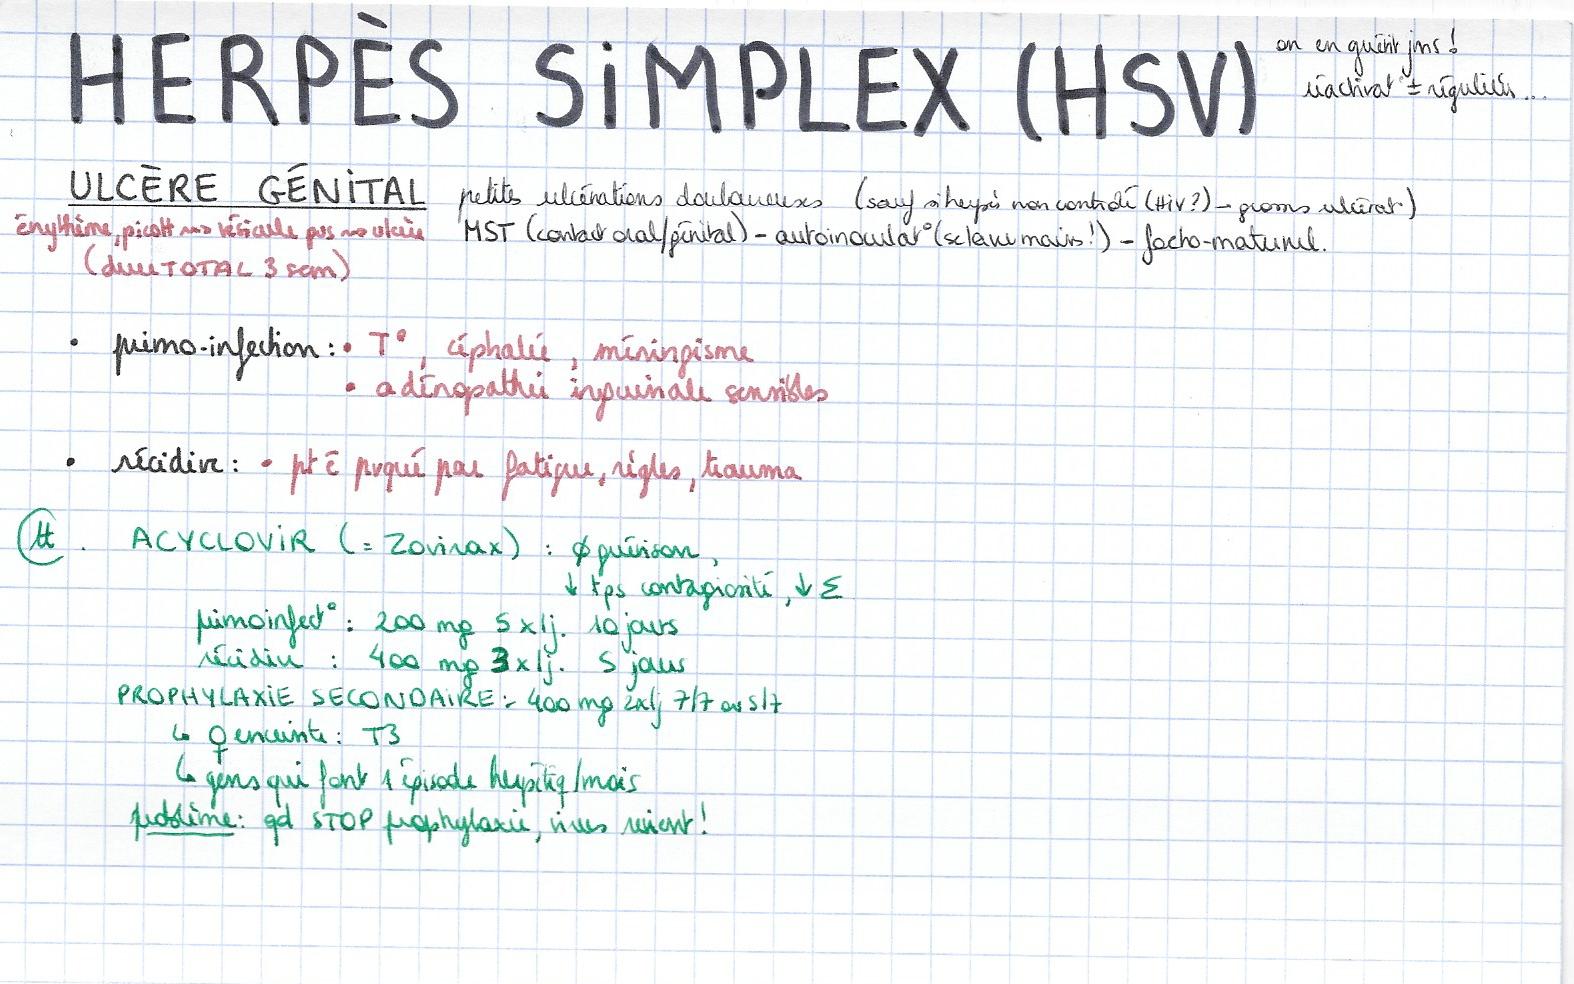 HERPÈS SiMPLEX (HSV)
on en guérit jms !
réactivat° ± régulières...
ULCÈRE GÉNiTAL
petits ulcérations douloureuses (sauf si herpès non contrôlé (Hiv?) → grosses ulcérat°)
érythème, picott ⟿ vésicule pus ⟿ ulcère
MST (contact oral/génital) - autoinoculat° (se laver mains!) - foeto-maternel.
(durée TOTAL 3 sem)
• primo-infection : • T°, céphalée, méningisme
• adénopathie inguinale sensibles
• récidive : • pt ê prqué par fatigue, règles, trauma
tt . ACYCLOViR (= Zovirax) : ∅ guérison,
↓ tps contagiosité, ↓ Σ
primoinfect° : 200 mg 5x/j. 10 jours
récidive : 400 mg 3x/j. 5 jours
PROPHYLAXiE SECONDAiRE : 400 mg 2x/j 7/7 ou 5/7
↳ ♀ enceinte : T3
↳ gens qui font 1 épisode herpétiq/mois
problème : qd STOP prophylaxie, virus revient !